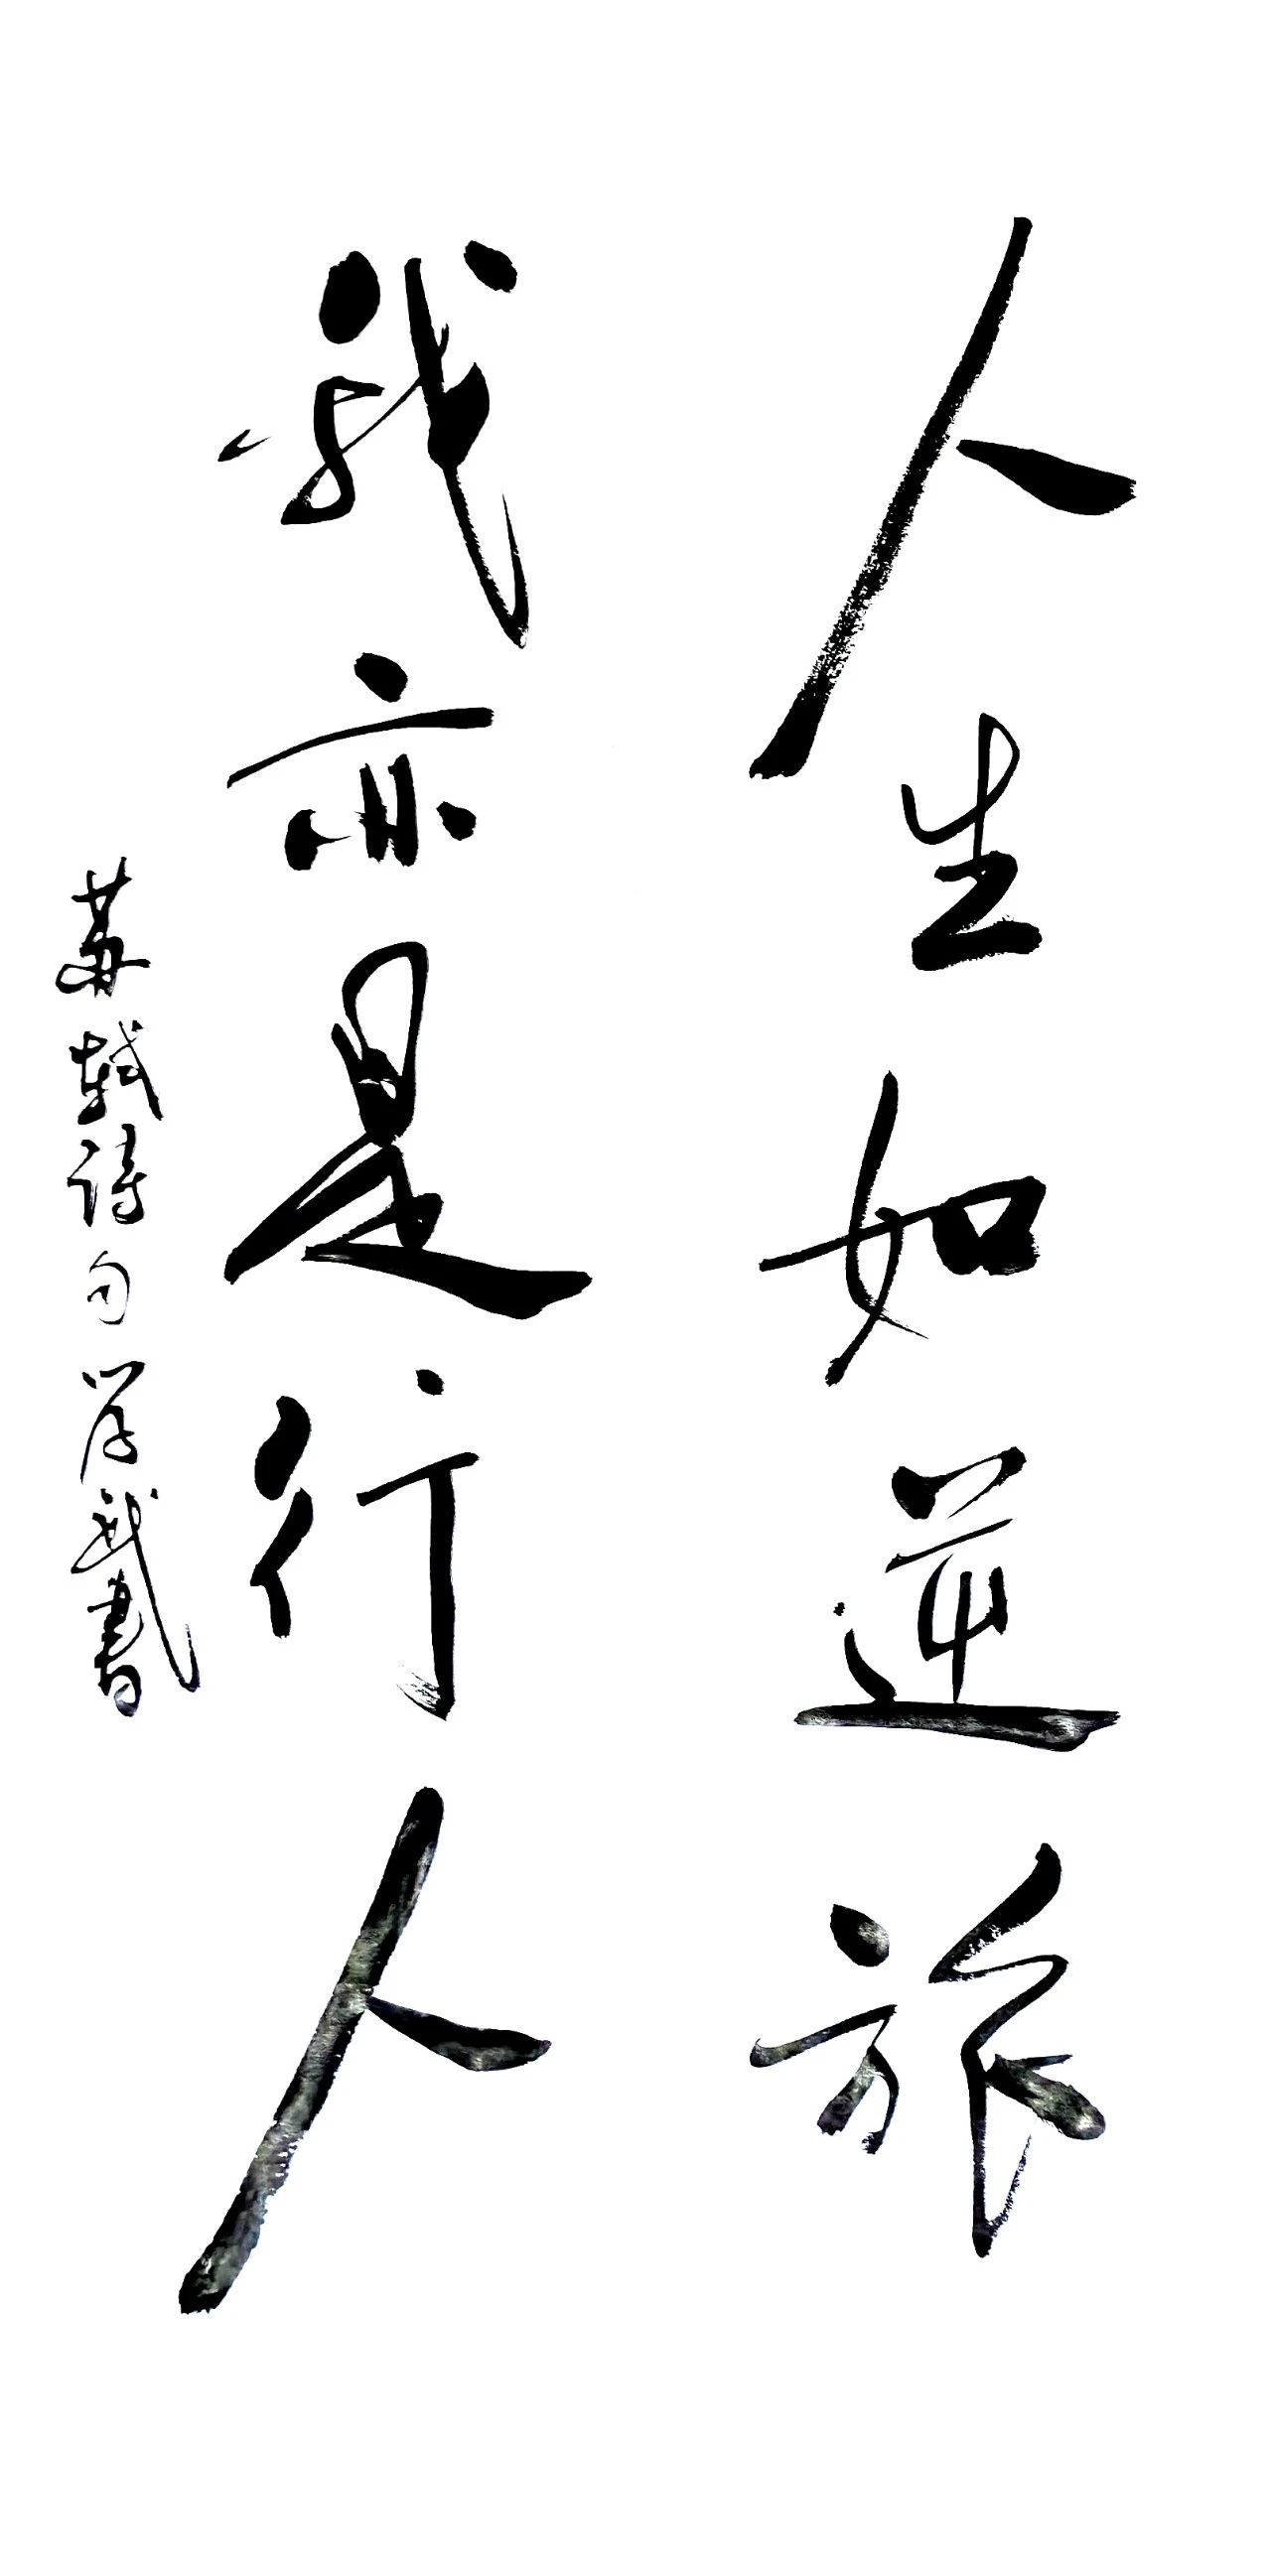 人生如逆旅
我亦是行人
苏轼诗句 学武书